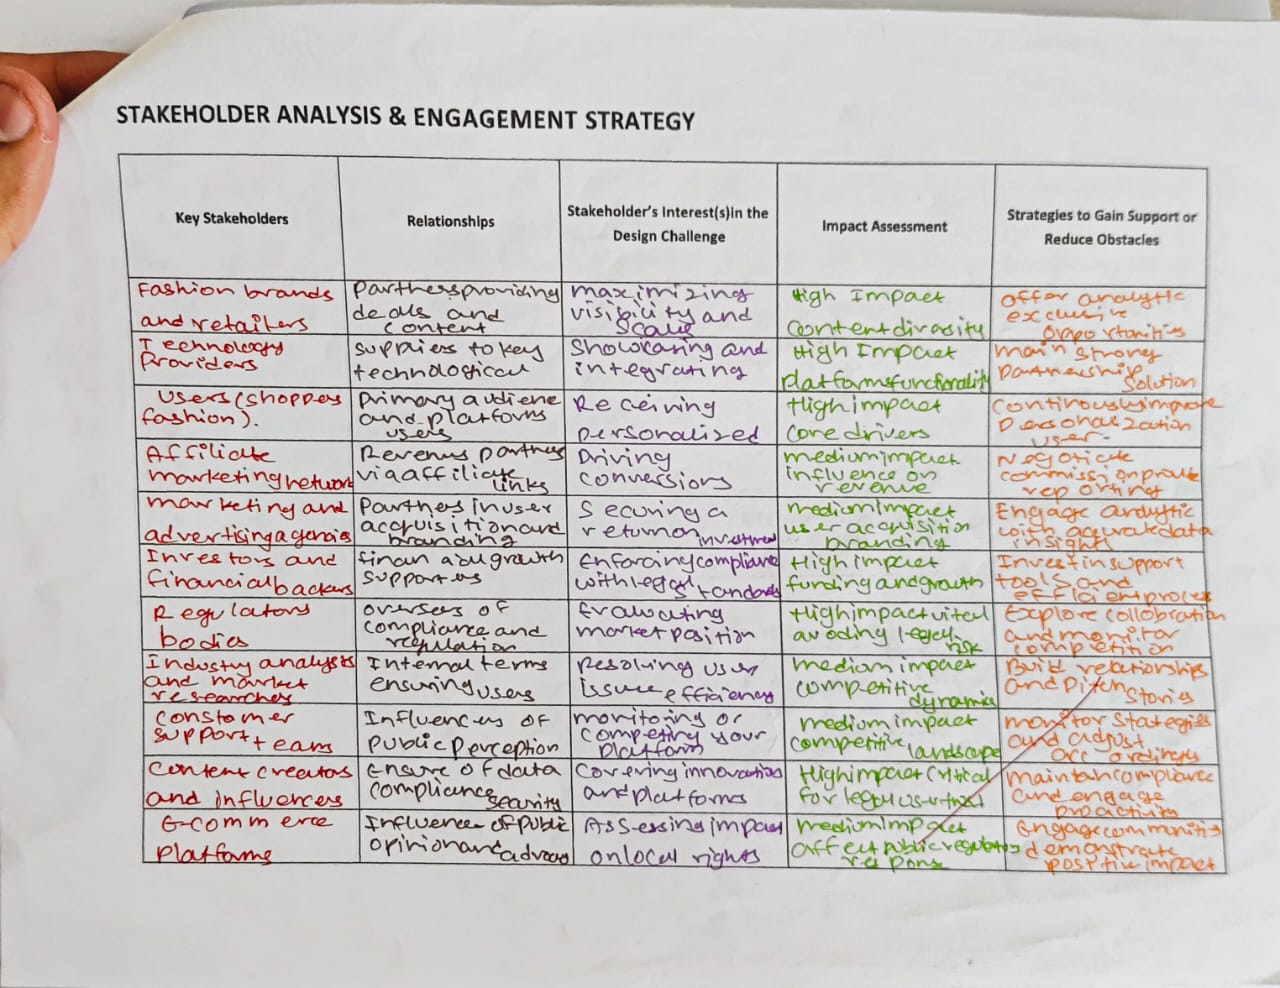 STAKEHOLDER ANALYSIS & ENGAGEMENT STRATEGY
Key Stakeholders
Relationships
Stakeholder's Interest(s)in the
Design Challenge
Impact Assessment
Strategies to Gain Support or
Reduce Obstacles
Fashion brands
and retailers
Partners providing
deals and
content
maximizing
visibility and
Scale
High Impact
content divasity
offer analytic
exclusive
oppo rtonities
Technology
Providers
suppliers to key
technological
Showcasing and
integrating
High Impact
platforms functionality
main strong
partnership
Solution
Users (shoppers
fashion).
primary audiene
and platforms
users
Receiving
personalized
High impact
core drivers
Continously improve
personalization
user.
Affiliate
marketing network
Revenus partners
via affiliate
links
Driving
conversions
medium impact
influence on
revenue
Negotiate
commission
reporting
marketing and
advertising agencies
Partners in user
acquisition and
branding
Securing a
return on investment
medium impact
user acquisition
branding
Engage analytic
with accurate data
insight
Investors and
financial backers
finan aial growth
supporters
Enforcing compliance
with legal
standards
High impact
funding and growth
Invest in support
tools and
efficient process
Regulators
bodies
oversees of
compliance and
regulation
Evaluating
market position
High impact vital
avoding legal
risk
Explore collobration
and monitor
competition
Industry analysts
and market
researchers
Internal terms
ensuring users
Resolving user
issues efficiency
medium impact
competitive
dynamic
Build relationships
and pitch
Stories
constomer
support team
Influencers of
public perception
monitoring or
competing your
platform
medium impact
competitive landscape
monitor Strategies
and adjust
Content creators
and influencers
Ensure of data
compliance
security
Covering innovation
and platforms
High impact critical
for legal
maintain compliance
and engage
proactivity
E-commerce
platforms
Influence of public
opinion and
Assessing impact
on local rights
medium impact
affect public
engage
demonstrate
positive impact